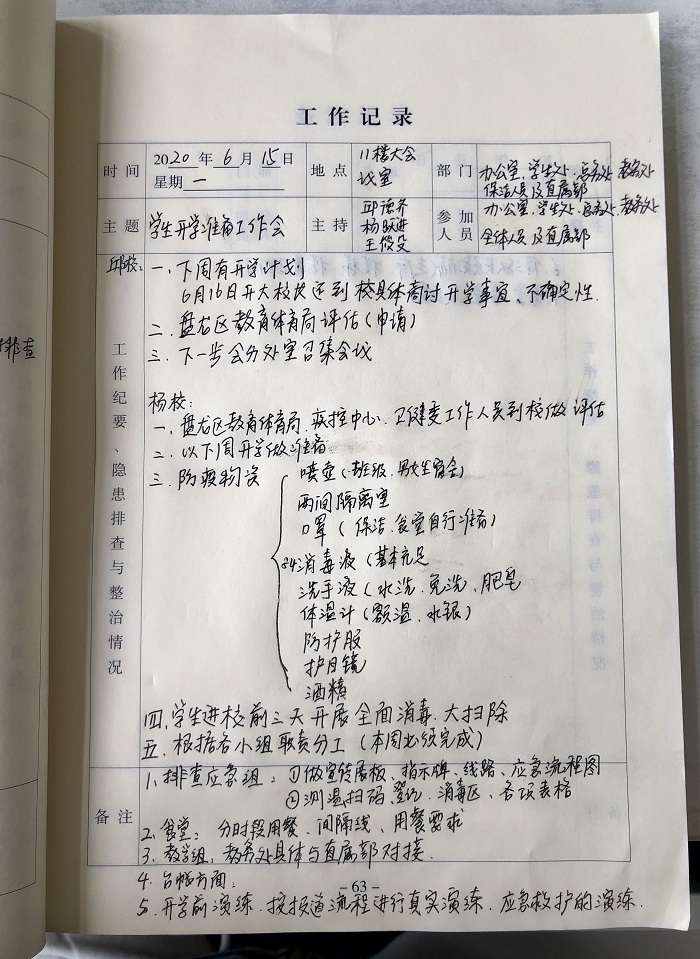 工作记录
时间 2020年6月15日 星期一 地点 11楼大会议室 部门 办公室、学生处、总务处、教务处 保洁人员及直属部
主题 学生开学准备工作会 主持 邱德齐 杨跃进 参加人员 办公室、学生处、总务处、教务处 全体人员及直属部
工作纪要、隐患排查与整治情况
邱校:一、下周有开学计划
6月16日开大校 到校具体商讨开学事宜、不确定性.
二、盘龙区教育体育局评估(申请)
三、下一步会分处室召集会议
杨校:
一、盘龙区教育体育局、疾控中心、卫健委工作人员到校做评估
二、以下周开学做准备
三、防疫物资
喷壶(班级、男女生宿舍)
两间隔离室
口罩(保洁、食堂自行准备)
84消毒液(基本充足
洗手液(水洗、免洗、肥皂
体温计(额温、水银)
防护服
护目镜
酒精
四、学生进校前三天开展全面消毒、大扫除
五、根据各小组职责分工(本周必须完成)
备注
1、排查应急组:①做宣传展板、指示牌、线路、应急流程图
②测温扫码登记、消毒区、各项表格
2、食堂:分时段用餐、间隔线、用餐要求
3、教学组、教务处具体与直属部对接.
4、台帐方面:
-63-
5、开学前演练、按报道流程进行真实演练、应急救护的演练.
排查